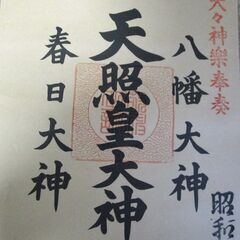 太々神樂奉奏
昭和
八幡大神
天照皇大神
春日大神